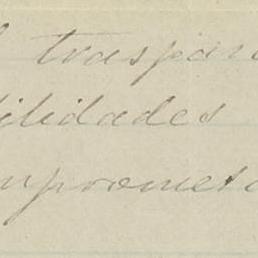 traspas
ilidades
mpromet